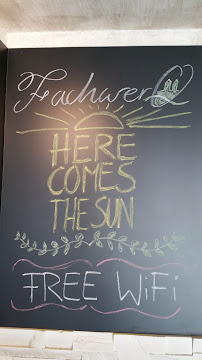 FachwerQ
HERE
COMES
THE SUN
FREE WiFi